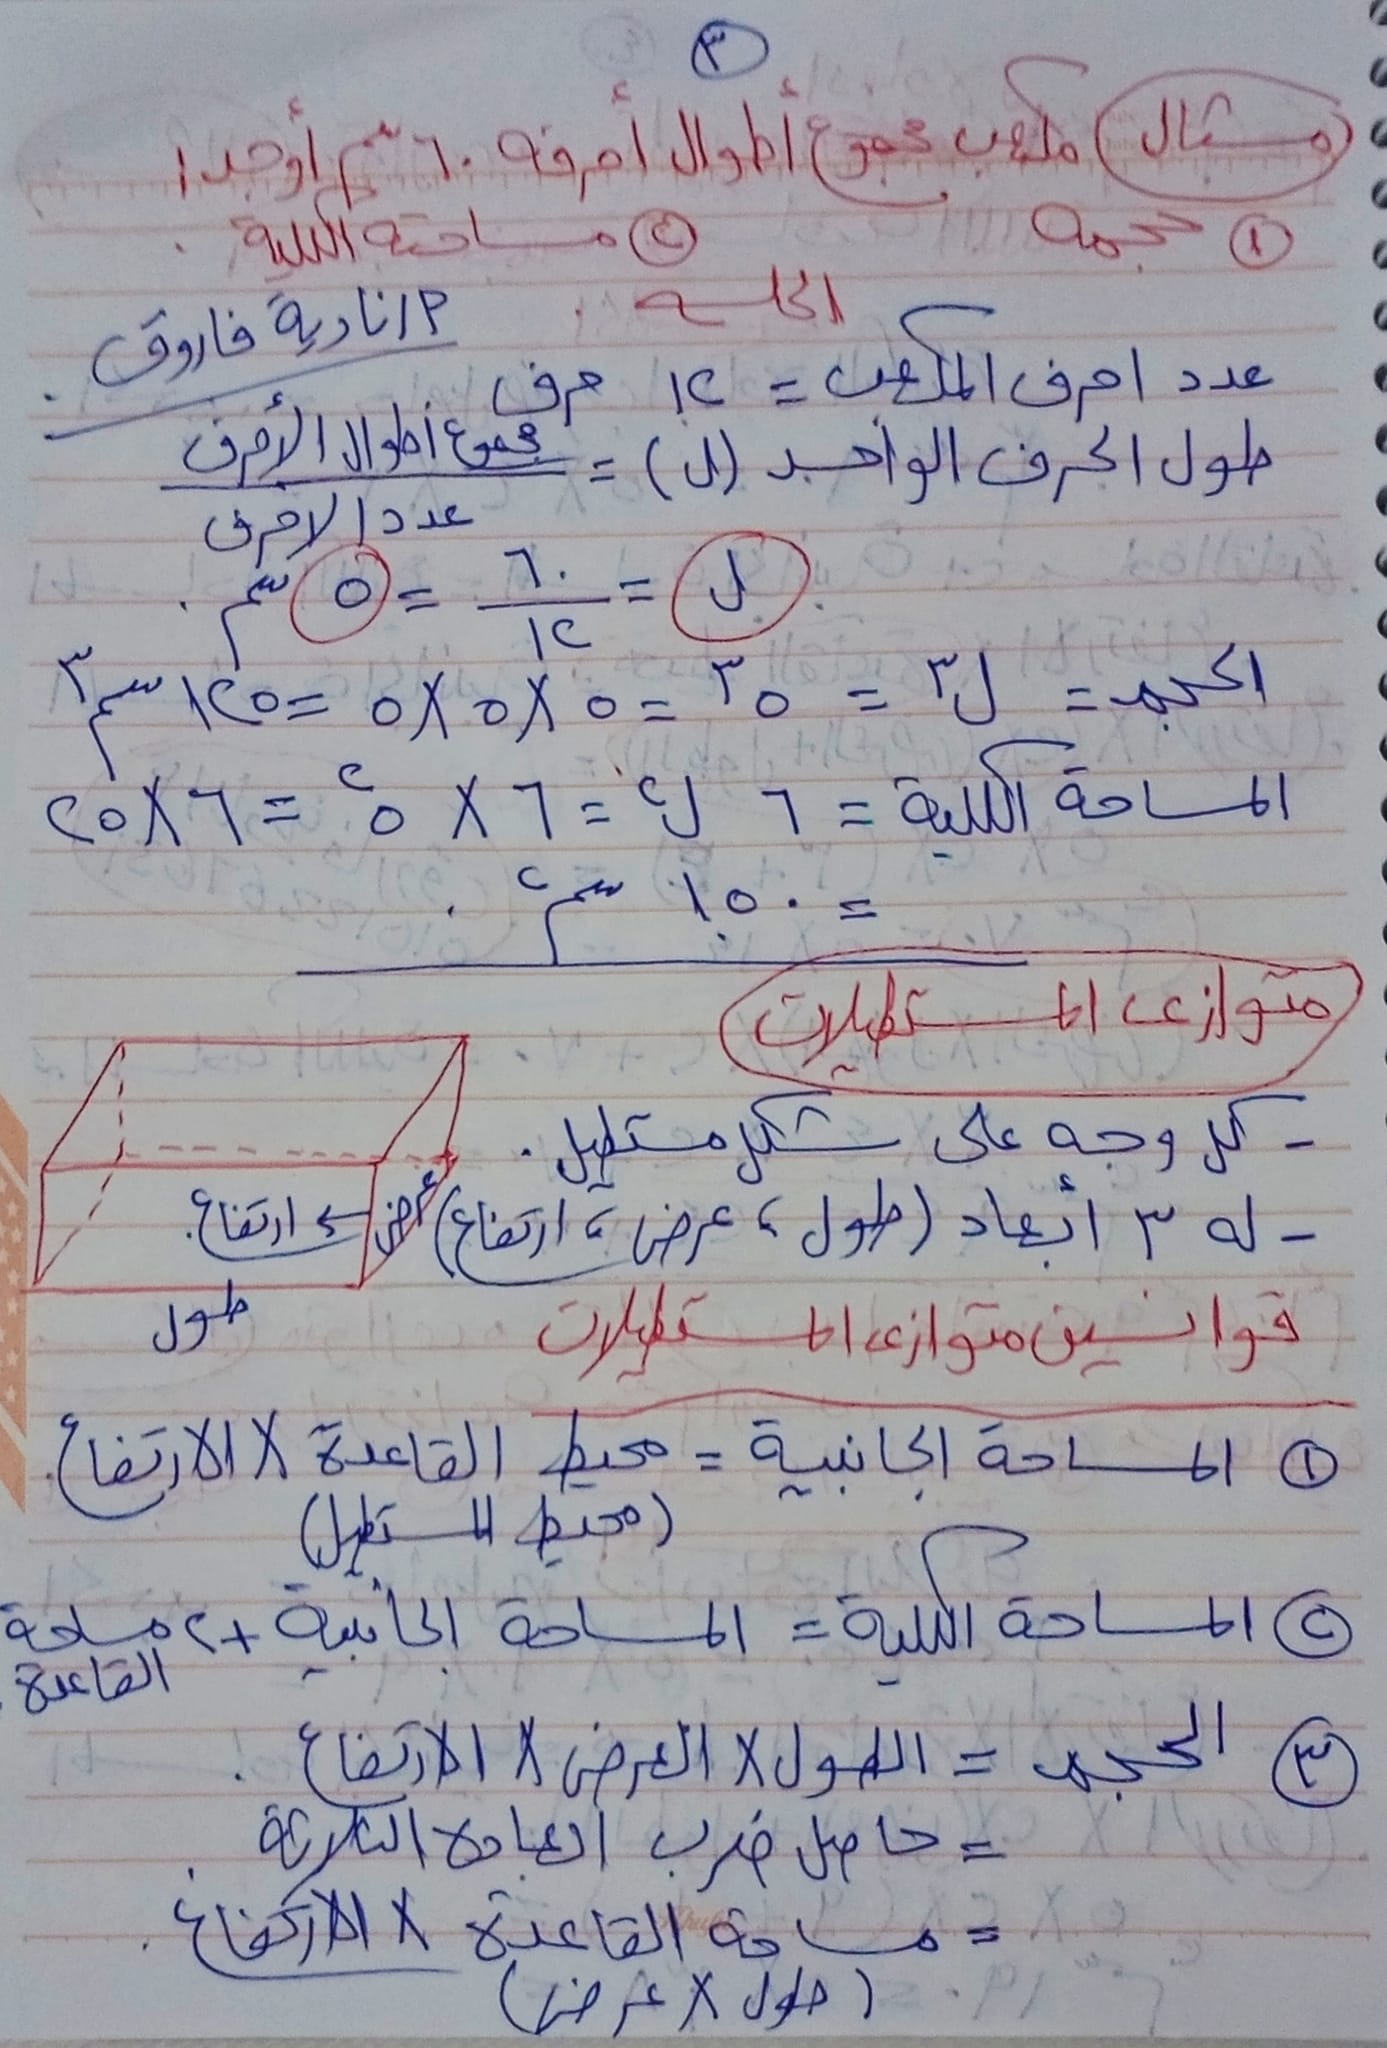 ٣
مثال مكعب مجموع أطوال أحرفه ٦٠ سم أوجد :
١ حجمه ٢ مساحته الكلية .
الحل .
م/ نادية فاروق .
عدد احرف المكعب = ١٢ حرف
طول الحرف الواحد (ل) = مجموع أطوال الأحرف
عدد الاحرف
ل = ٦٠/١٢ = ٥ سم .
الحجم = ل٣ = ٥٣ = ٥ X ٥ X ٥ = ١٢٥ سم٣
المساحة الكلية = ٦ ل٢ = ٦ X ٥٢ = ٦ X ٢٥
= ١٥٠ سم٢ .
متوازى المستطيلات
- كل وجه على شكل مستطيل .
- له ٣ أبعاد (طول ، عرض ، ارتفاع)
عرض ى ارتفاع .
طول
قوانين متوازى المستطيلات
١ المساحة الجانبية = محيط القاعدة X الارتفاع .
(محيط المستطيل)
٢ المساحة الكلية = المساحة الجانبية + ٢ مساحة
القاعدة .
٣ الحجم = الطول X العرض X الارتفاع .
= حاصل ضرب ابعاده الثلاثة .
= مساحة القاعدة X الارتفاع .
(طول X عرض)